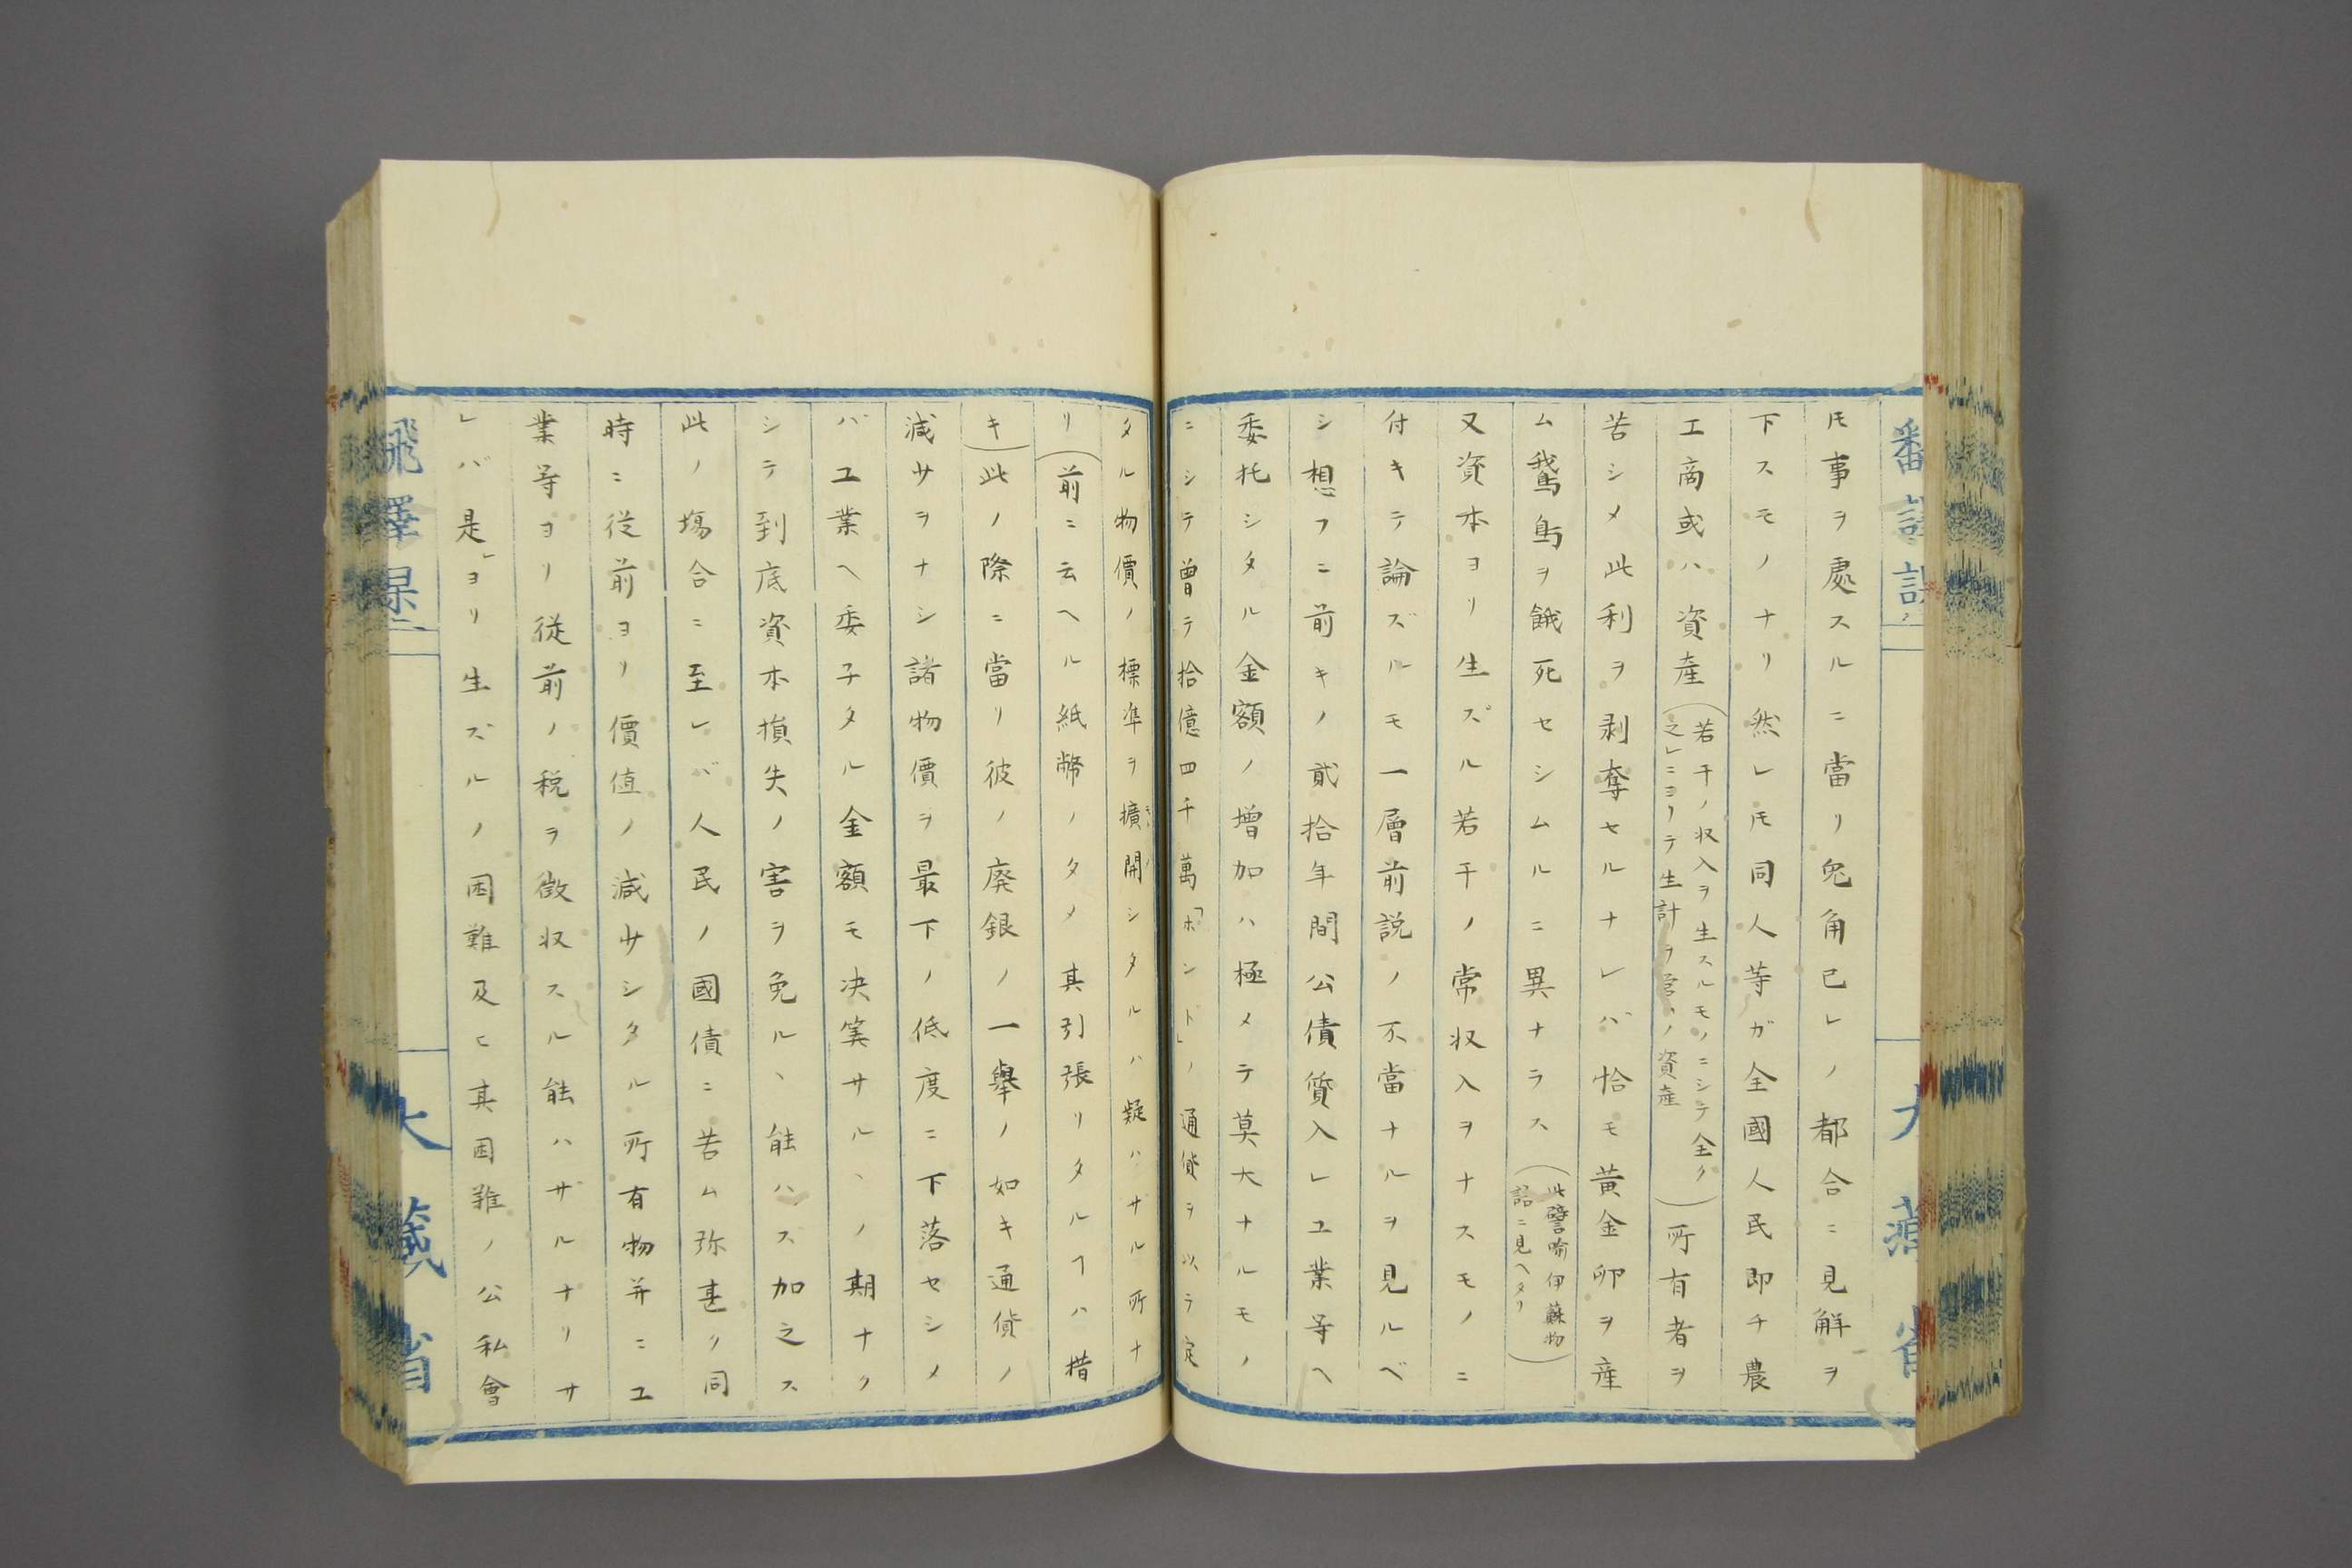 翻譯課
大藏省
𪜈事ヲ處スルニ當リ兔角已レノ都合ニ見解ヲ
下スモノナリ然レ𪜈同人等ガ全國人民即チ農
工商或ハ資産(若干ノ収入ヲ生スルモノニシテ全ク
之レニヨリテ生計ヲ営ムノ資産)所有者ヲ
苦シメ此利ヲ剥奪セルナレバ恰モ黄金卵ヲ産
ム鵞鳥ヲ餓死セシムルニ異ナラス(此譬喩伊蘇物
語ニ見ヘタリ)
又資本ヨリ生ズル若干ノ常収入ヲナスモノニ
付キテ論ズルモ一層前説ノ不當ナルヲ見ルベ
シ想フニ前キノ貳拾年間公債質入レ工業等ヘ
委托シタル金額ノ増加ハ極メテ莫大ナルモノ
ニシテ曽テ拾億四千萬「ポンド」ノ通貨ヲ以テ定
タル物價ノ標準ヲ擴開シタルハ疑ハザル所ナ
リ(前ニ云ヘル紙幣ノタメ其引張リタルヿハ措
キ)此ノ際ニ當リ彼ノ廃銀ノ一擧ノ如キ通貨ノ
減サヲナシ諸物價ヲ最下ノ低度ニ下落セシメ
バ工業ヘ委子タル金額モ决筭サルヽノ期ナク
シテ到底資本損失ノ害ヲ免ルヽ能ハズ加之ス
此ノ塲合ニ至レバ人民ノ國債ニ苦ム弥甚ク同
時ニ従前ヨリ價値ノ減サシタル所有物并ニ工
業等ヨリ従前ノ税ヲ徴収スル能ハザルナリサ
レバ是レヨリ生ズルノ困難及ヒ其困難ノ公私會
飜譯課
大藏省